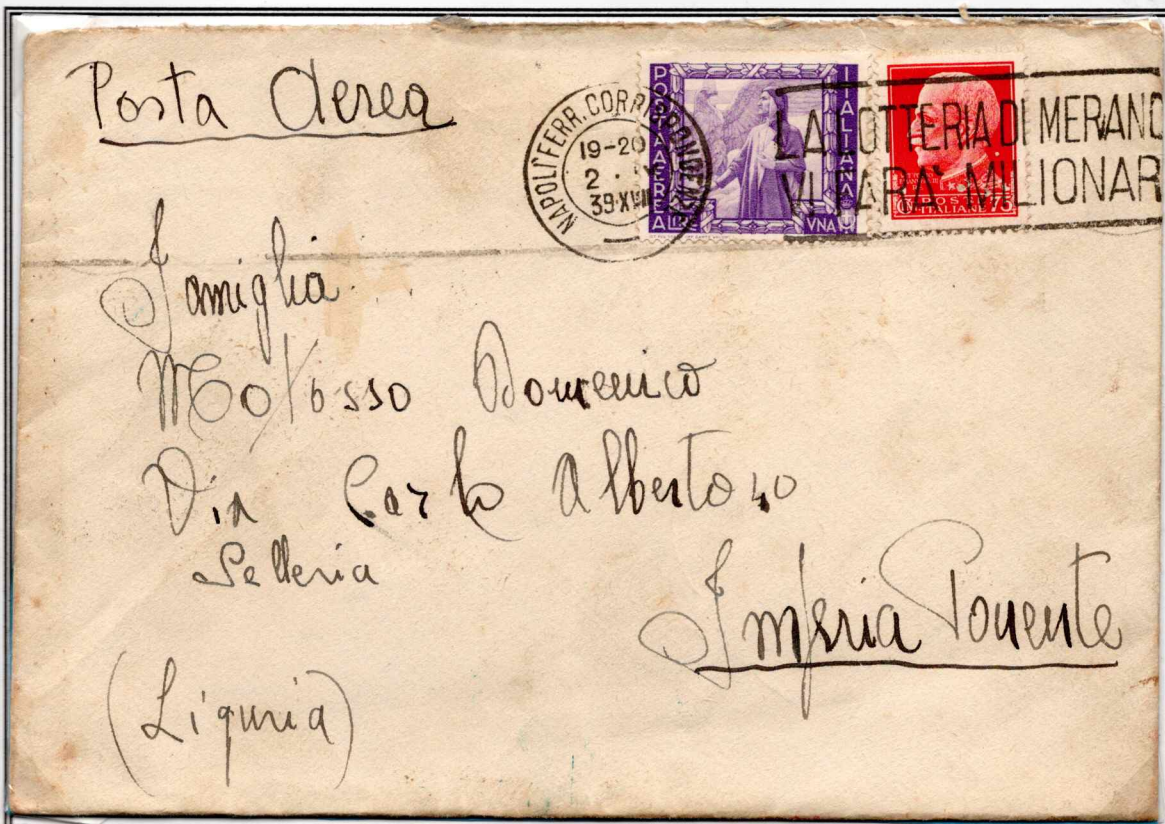 Posta Aerea
NAPOLI FERR. CORRISPONDENZE
19-20
2 .
39 XVII
POSTA AEREA
ITALIANA
LIRE VNA
LA LOTTERIA DI MERANO
VI FARA' MILIONAR
POSTE
ITALIANE 75
Famiglia
Domenico
Via Carlo Alberto 40
Selleria
Imperia Ponente
(Liguria)